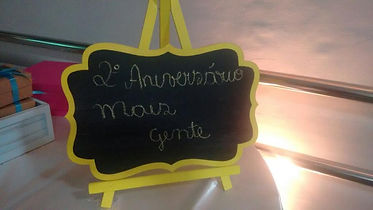 2º Aniversário
mais
gente